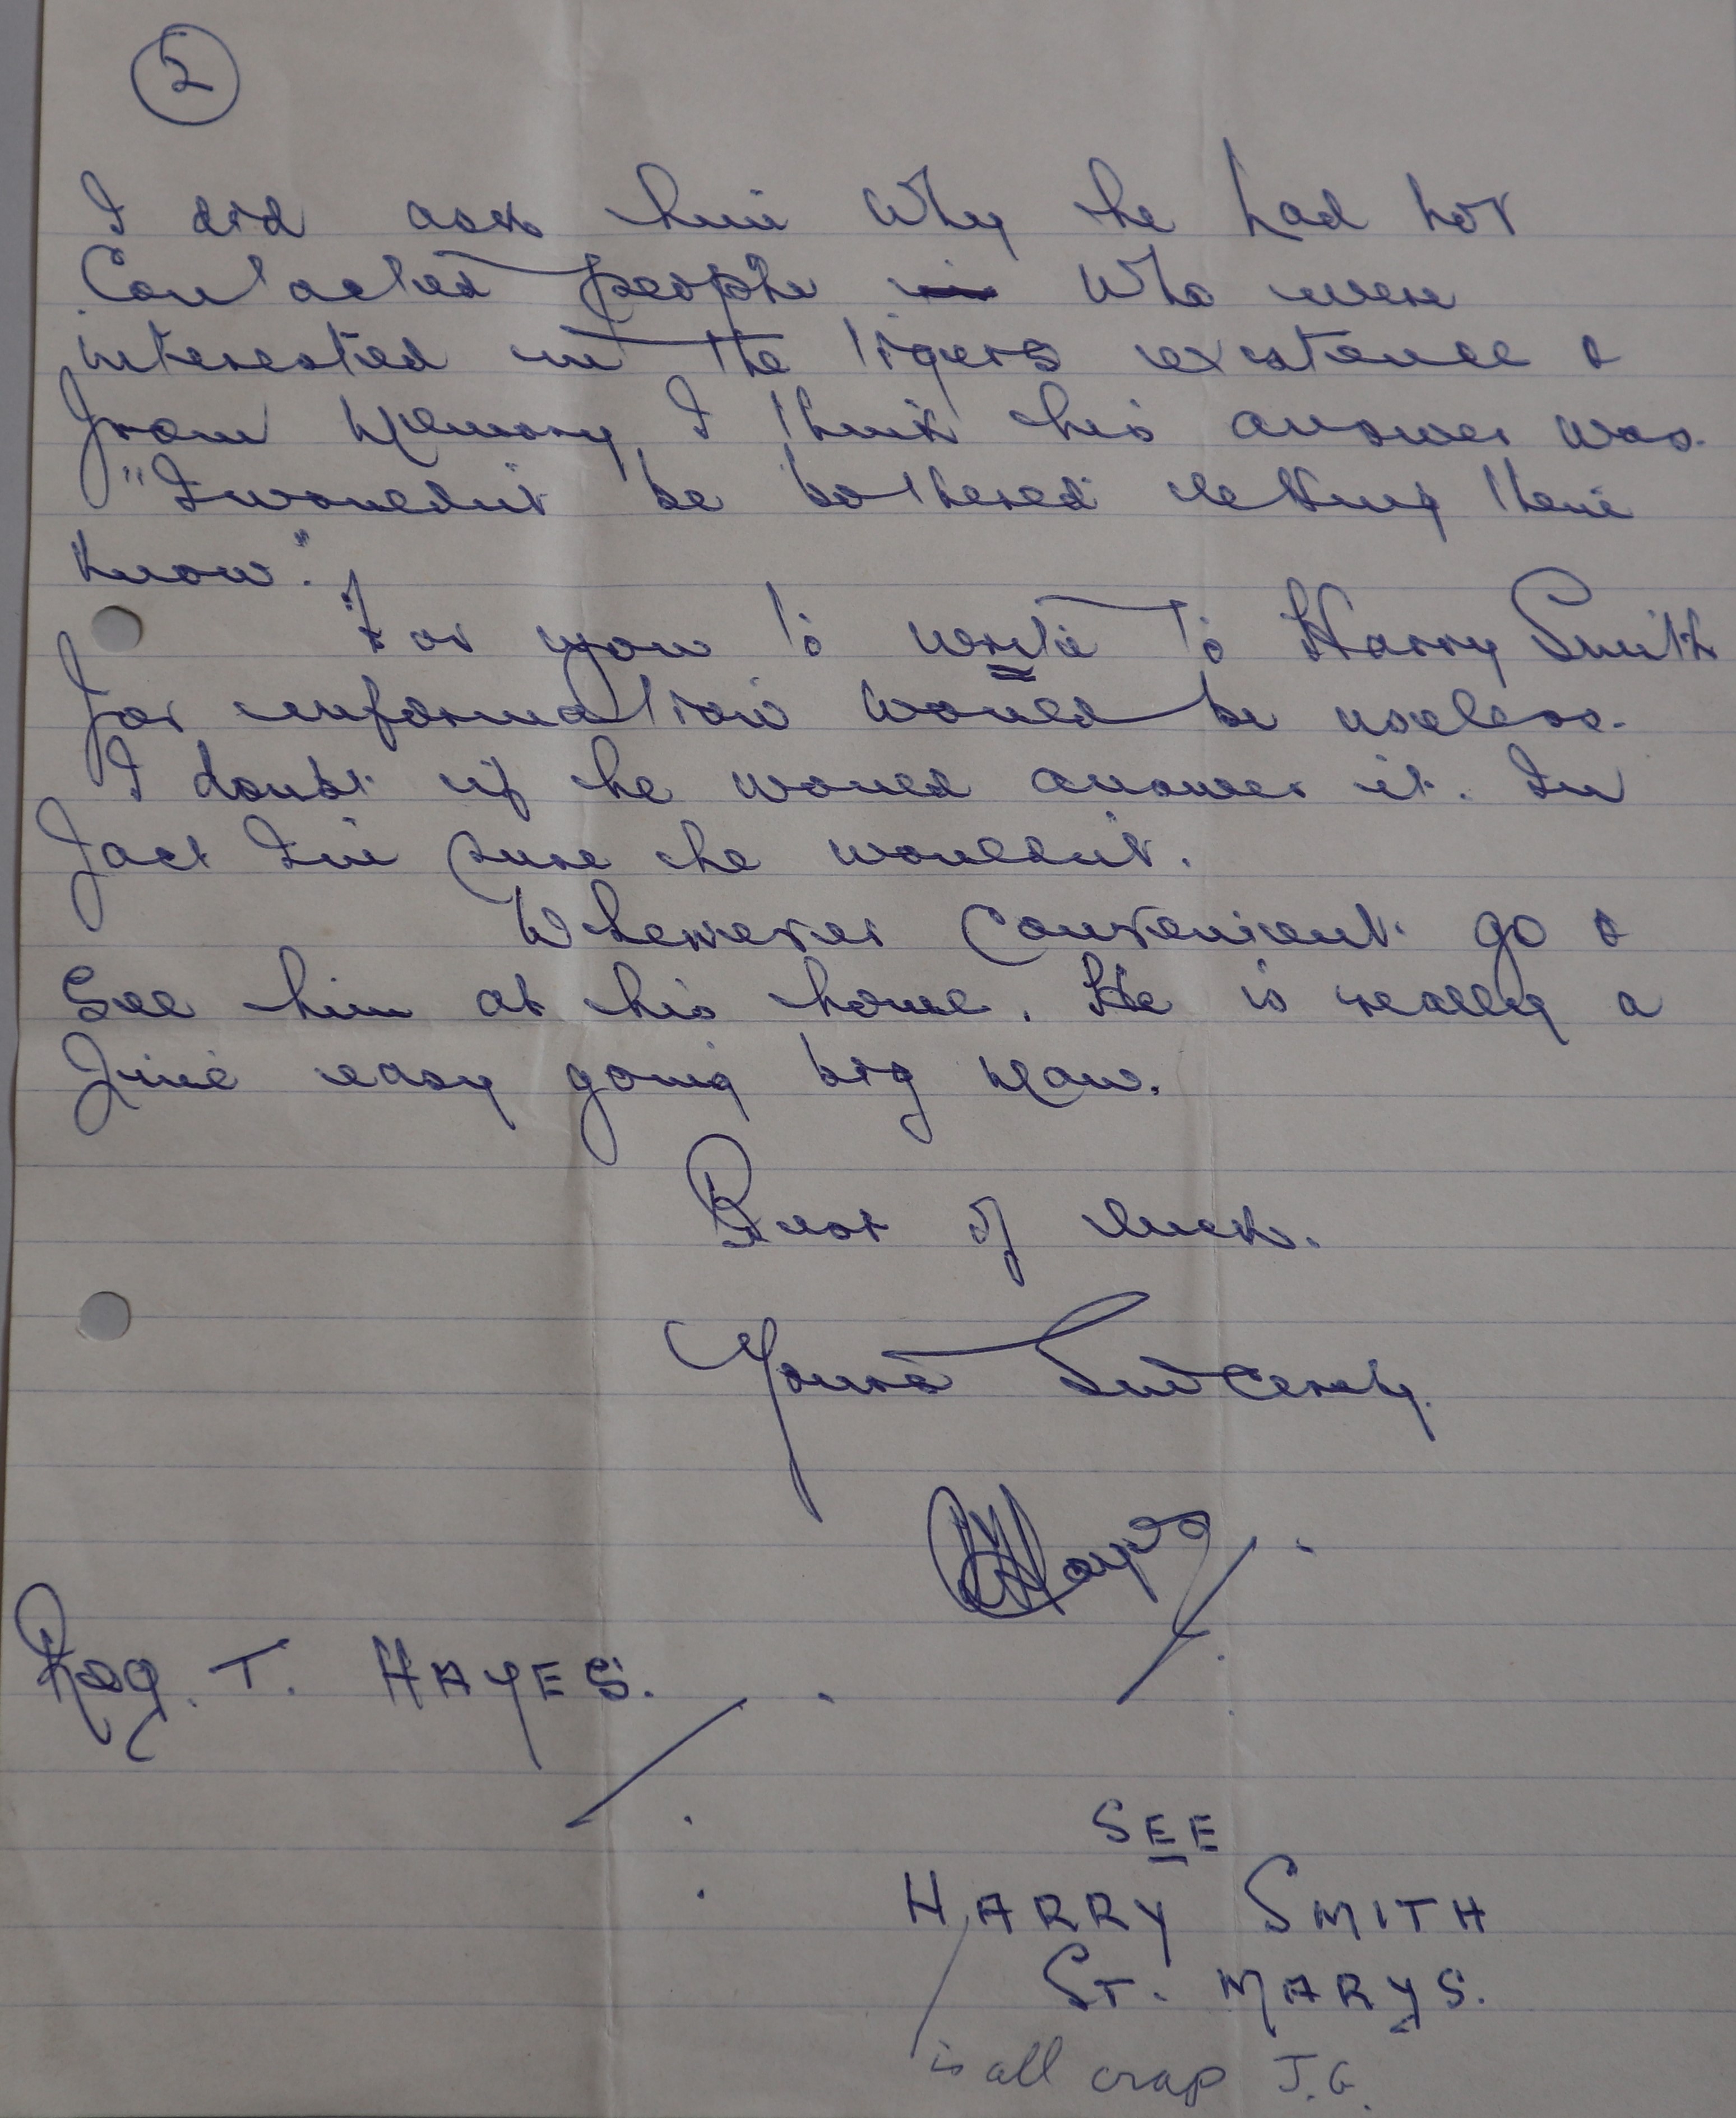 2
I did ask him why he had not
Contacted people in who were
interested in the tigers existence &
from Memory I think his answer was.
"I wouldn't be bothered letting them
know".
For you to write to Harry Smith
for information would be useless.
I doubt if he would answer it. In
fact I'm sure he wouldn't.
Whenever Convenient go &
See him at his home. He is really a
fine easy going big Man.
Best of luck.
Yours Sincerely.
Hayes
Reg. T. HAYES.
SEE
HARRY SMITH
ST. MARYS.
is all crap J.G.